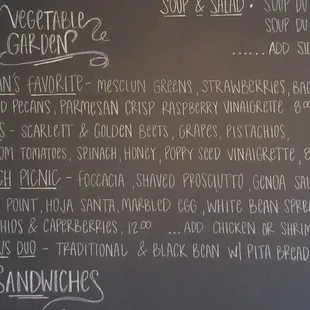 VEGETABLE
GARDEN
SOUP & SALAD . SOUP DU
SOUP DU
...... ADD SID
AN'S FAVORITE - MESCLUN GREENS, STRAWBERRIES, BAC
D PECANS, PARMESAN CRISP RASPBERRY VINAIGRETTE 8.00
S - SCARLETT & GOLDEN BEETS, GRAPES, PISTACHIOS,
OM TOMATOES, SPINACH, HONEY, POPPY SEED VINAIGRETTE, 8
CH PICNIC - FOCCACIA, SHAVED PROSCIUTTO, GENOA SAL
POINT, HOJA SANTA, MARBLED EGG, WHITE BEAN SPRE
HIOS & CAPERBERRIES, 12.00 ... ADD CHICKEN OR SHRIM
US DUO - TRADITIONAL & BLACK BEAN W/ PITA BREAD
SANDWICHES